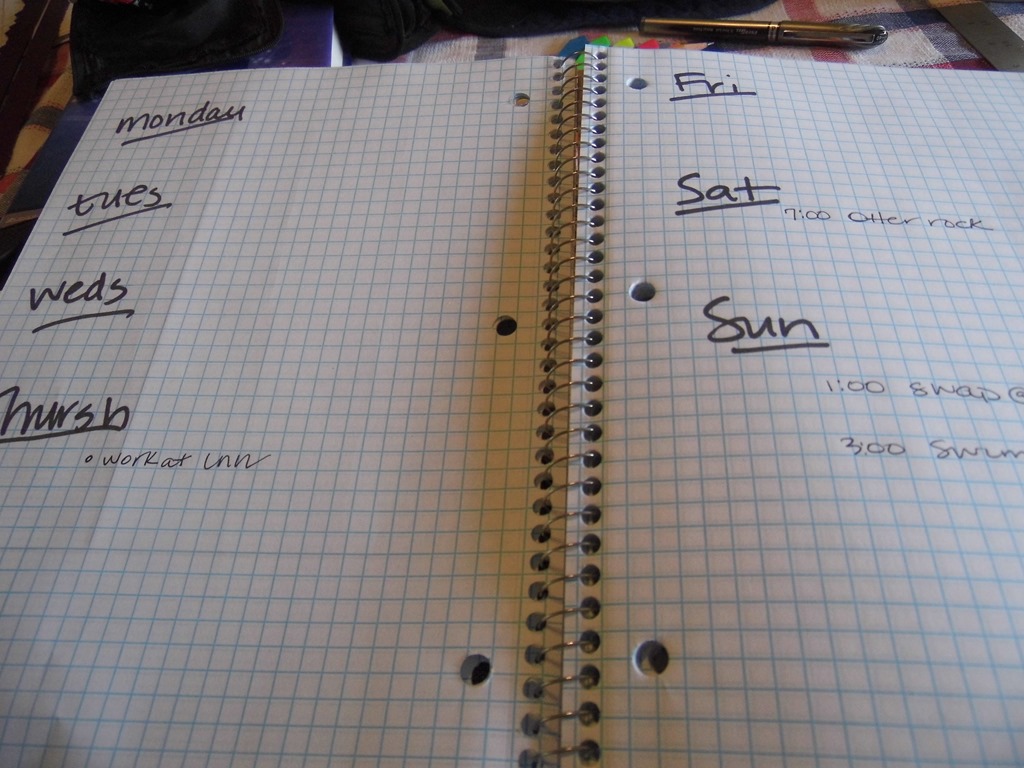 monday
tues
weds
Thursd
• work at inn
Fri
Sat
7:00 Otter rock
Sun
1:00 swap @
3:00 swim